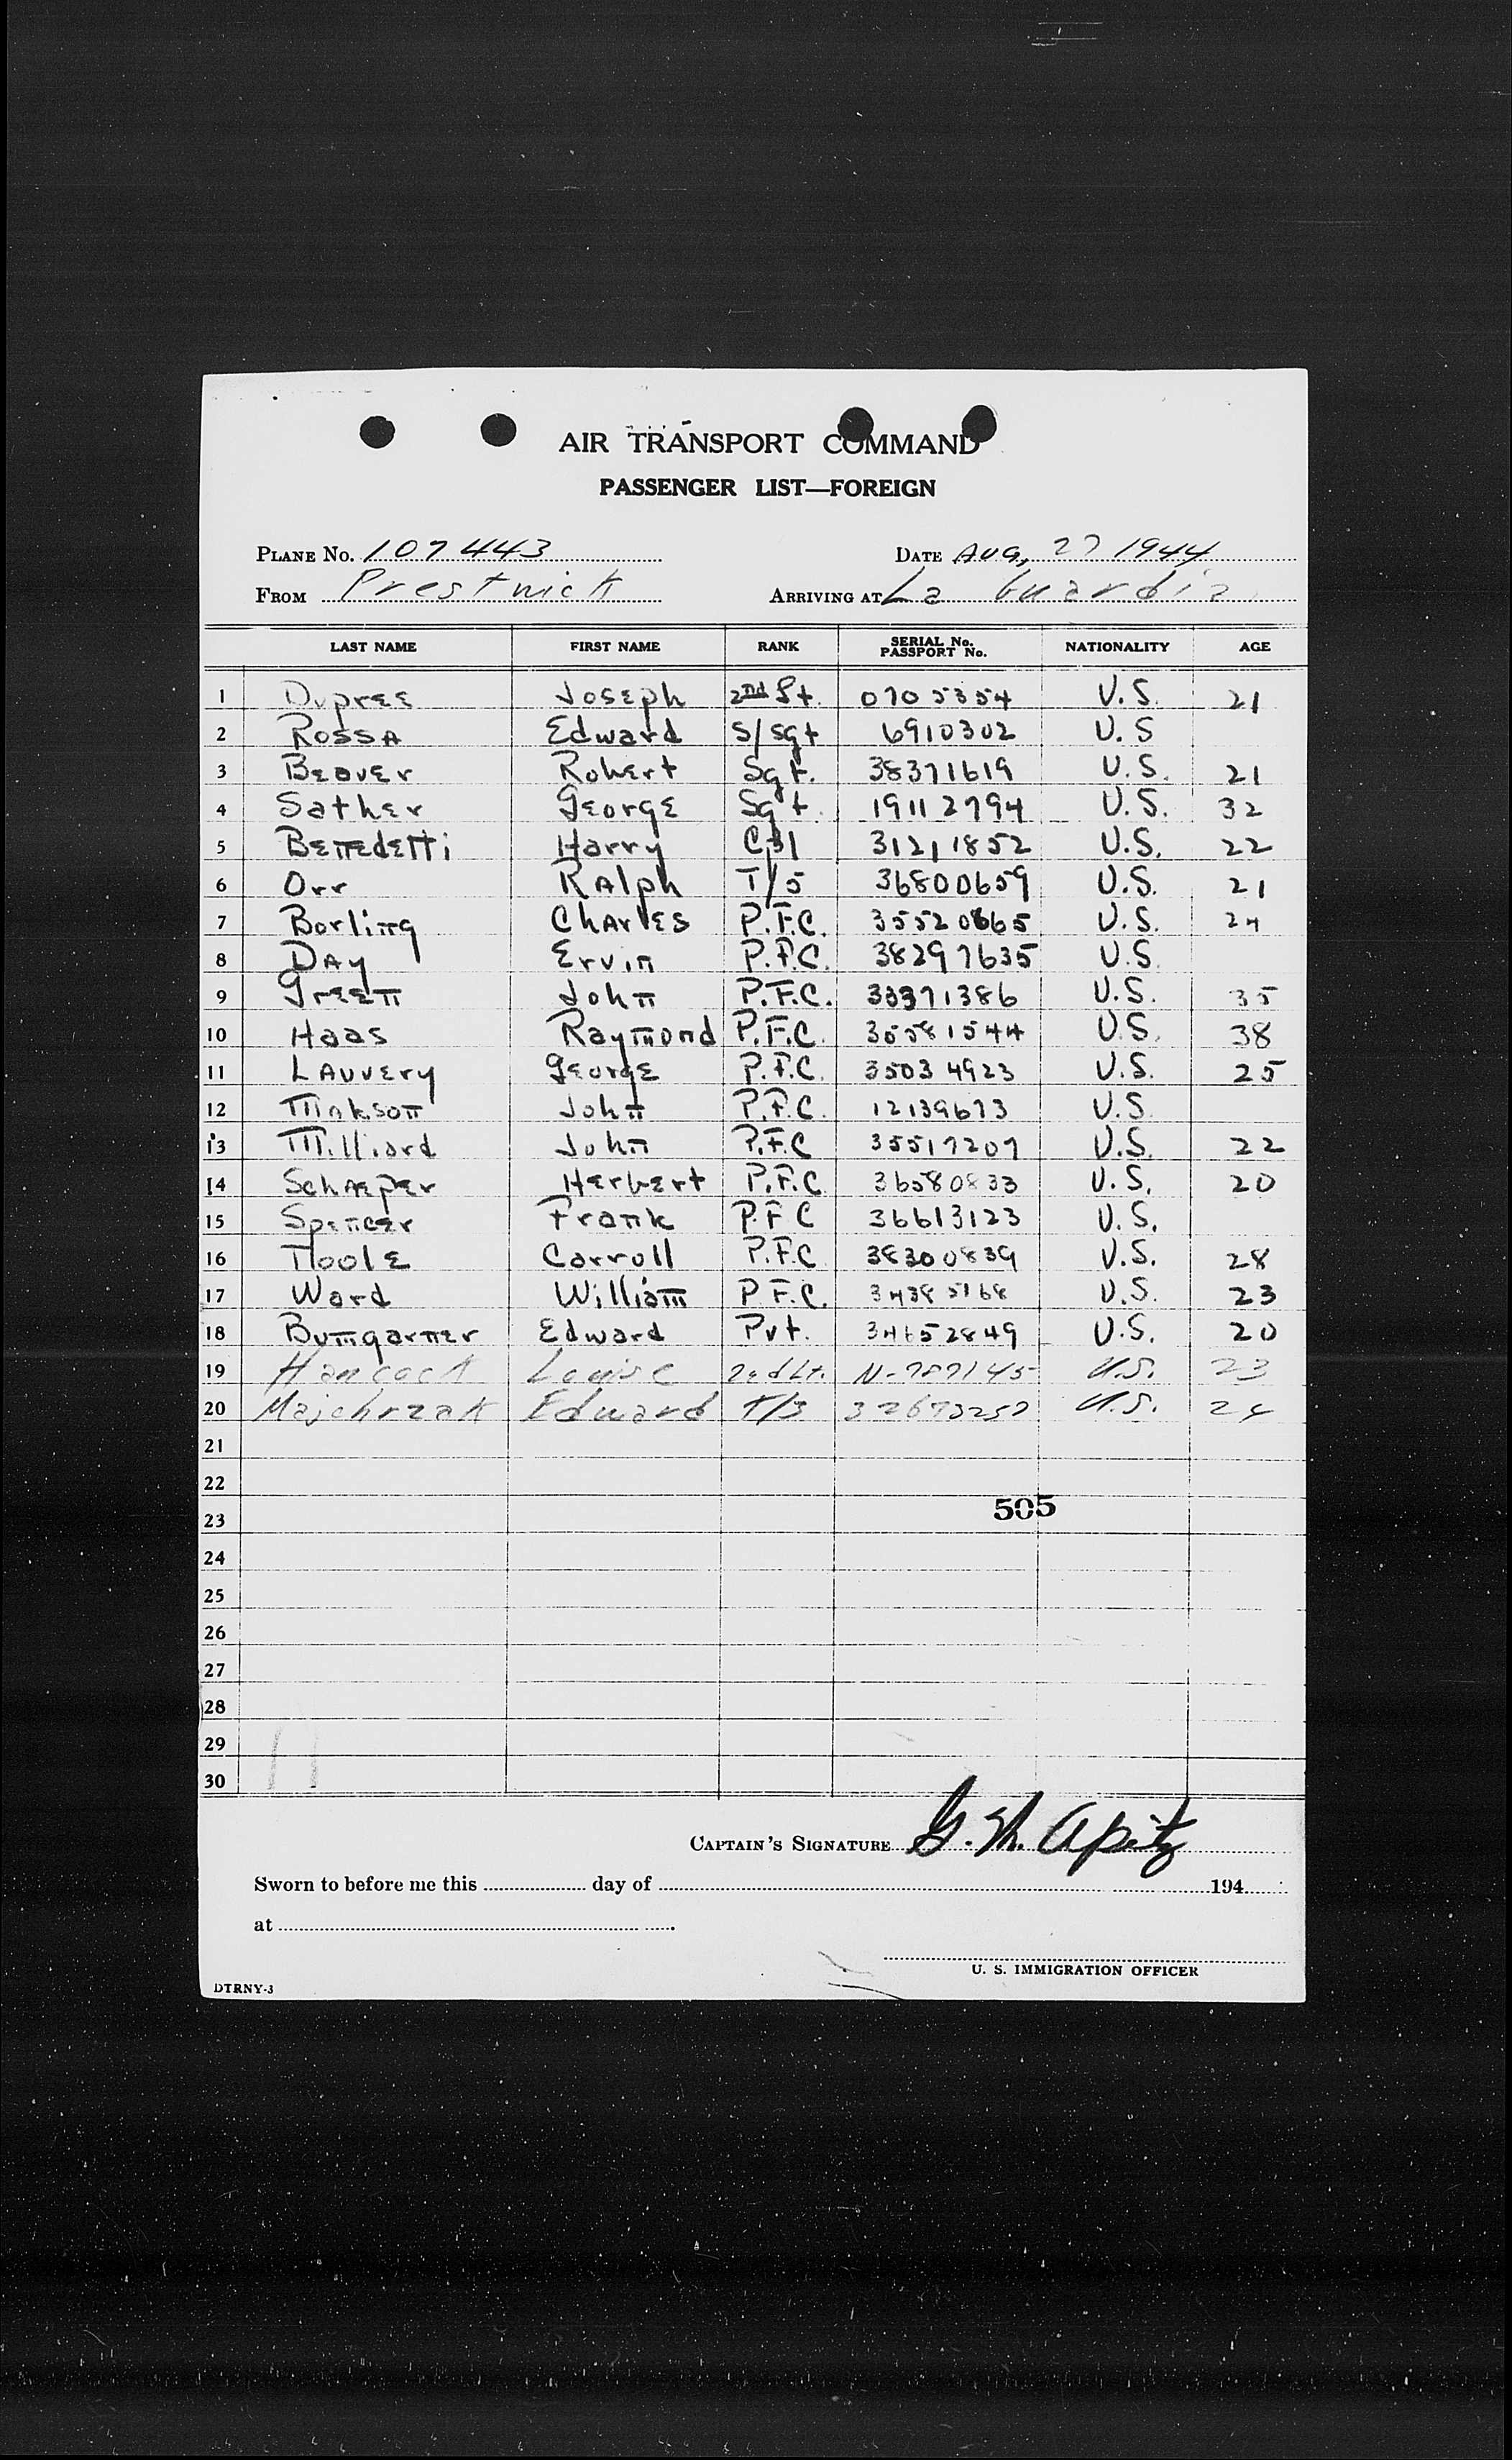 AIR TRANSPORT COMMAND
PASSENGER LIST—FOREIGN
PLANE No. 107443 DATE Aug, 27 1944
FROM Prestwick ARRIVING AT La Guardia
LAST NAME FIRST NAME RANK SERIAL No. PASSPORT No. NATIONALITY AGE
1 Dupree Joseph 2nd Lt. 0705354 U.S. 21
2 Rossa Edward S/Sgt 6910302 U.S
3 Beaver Robert Sgt. 38371619 U.S. 21
4 Sather George Sgt. 19112794 U.S. 32
5 Benedetti Harry Cpl 31211852 U.S. 22
6 Orr Ralph T/5 36800659 U.S. 21
7 Borling Charles P.F.C. 35520865 U.S. 24
8 Day Ervin P.F.C. 38297635 U.S.
9 Green John P.F.C. 33371386 U.S. 35
10 Haas Raymond P.F.C. 35581544 U.S. 38
11 Lavvery George P.F.C. 35034923 U.S. 25
12 Makson John P.F.C. 12139673 U.S.
13 Milliard John P.F.C 35517207 U.S. 22
14 Schaeper Herbert P.F.C. 36580833 U.S. 20
15 Spencer Frank P.F C 36613123 U.S.
16 Toole Carroll P.F.C 38300839 U.S. 28
17 Ward William P F.C. 34385168 U.S. 23
18 Bumgarner Edward Pvt. 34652849 U.S. 20
19 Hancock Louise 2nd Lt. U.S. 23
20 Majchrzak Edward T/3 32673257 U.S.
21
22
505
23
24
25
26
27
28
29
30
CAPTAIN'S SIGNATURE G. M. Apitz
Sworn to before me this day of 194
at
U. S. IMMIGRATION OFFICER
DTRNY-3